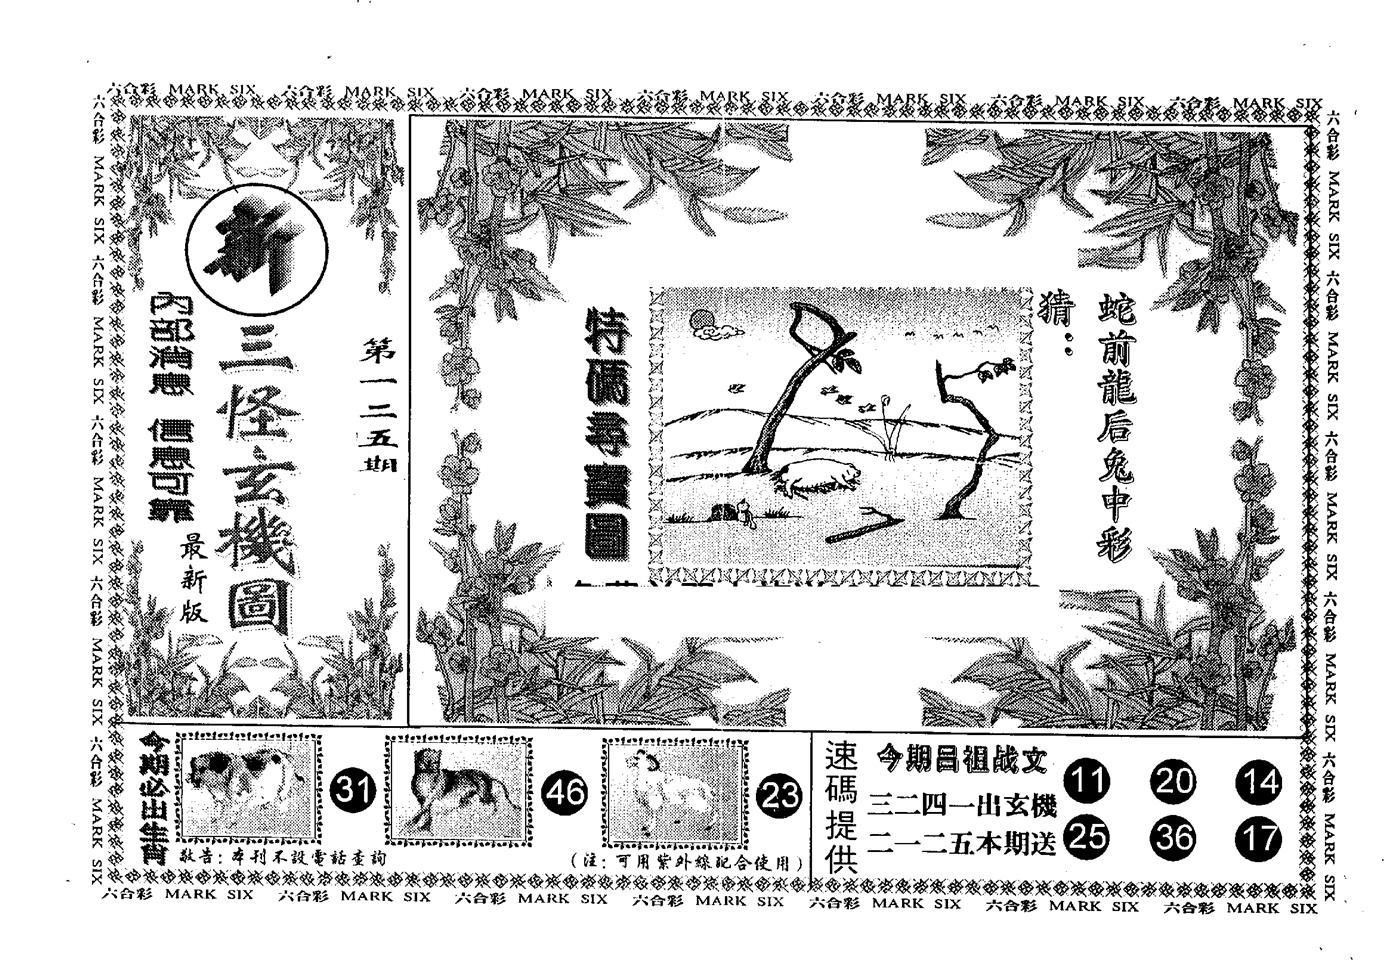 六合彩 MARK SIX 六合彩 MARK SIX 六合彩 MARK SIX 六合彩 MARK SIX 六合彩 MARK SIX 六合彩 MARK SIX 六合彩 MARK SIX
六合彩 MARK SIX 六合彩 MARK SIX 六合彩 MARK SIX 六合彩 MARK SIX 六合彩 MARK SIX
新
三怪玄機圖
內部消息 信息可靠
最新版
第一二五期
特碼尋寶圖
猜：
蛇前龍后兔中彩
今期必出生肖
31
46
23
敬告：本刊不設電話查詢
（注：可用紫外線配合使用）
速碼提供
今期吕祖战文
三二四一出玄機
二一二五本期送
11 20 14
25 36 17
六合彩 MARK SIX 六合彩 MARK SIX 六合彩 MARK SIX 六合彩 MARK SIX 六合彩 MARK SIX
六合彩 MARK SIX 六合彩 MARK SIX 六合彩 MARK SIX 六合彩 MARK SIX 六合彩 MARK SIX 六合彩 MARK SIX 六合彩 MARK SIX